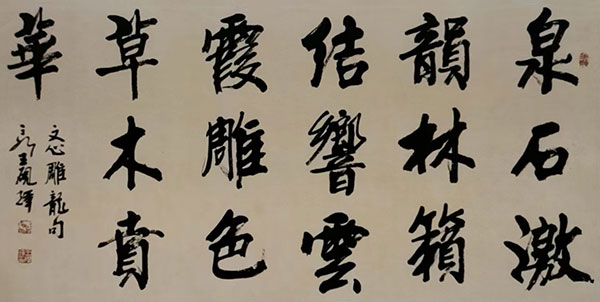 泉石激
韻林籟
結響雲
霞雕色
草木賁
華
文心雕龍句